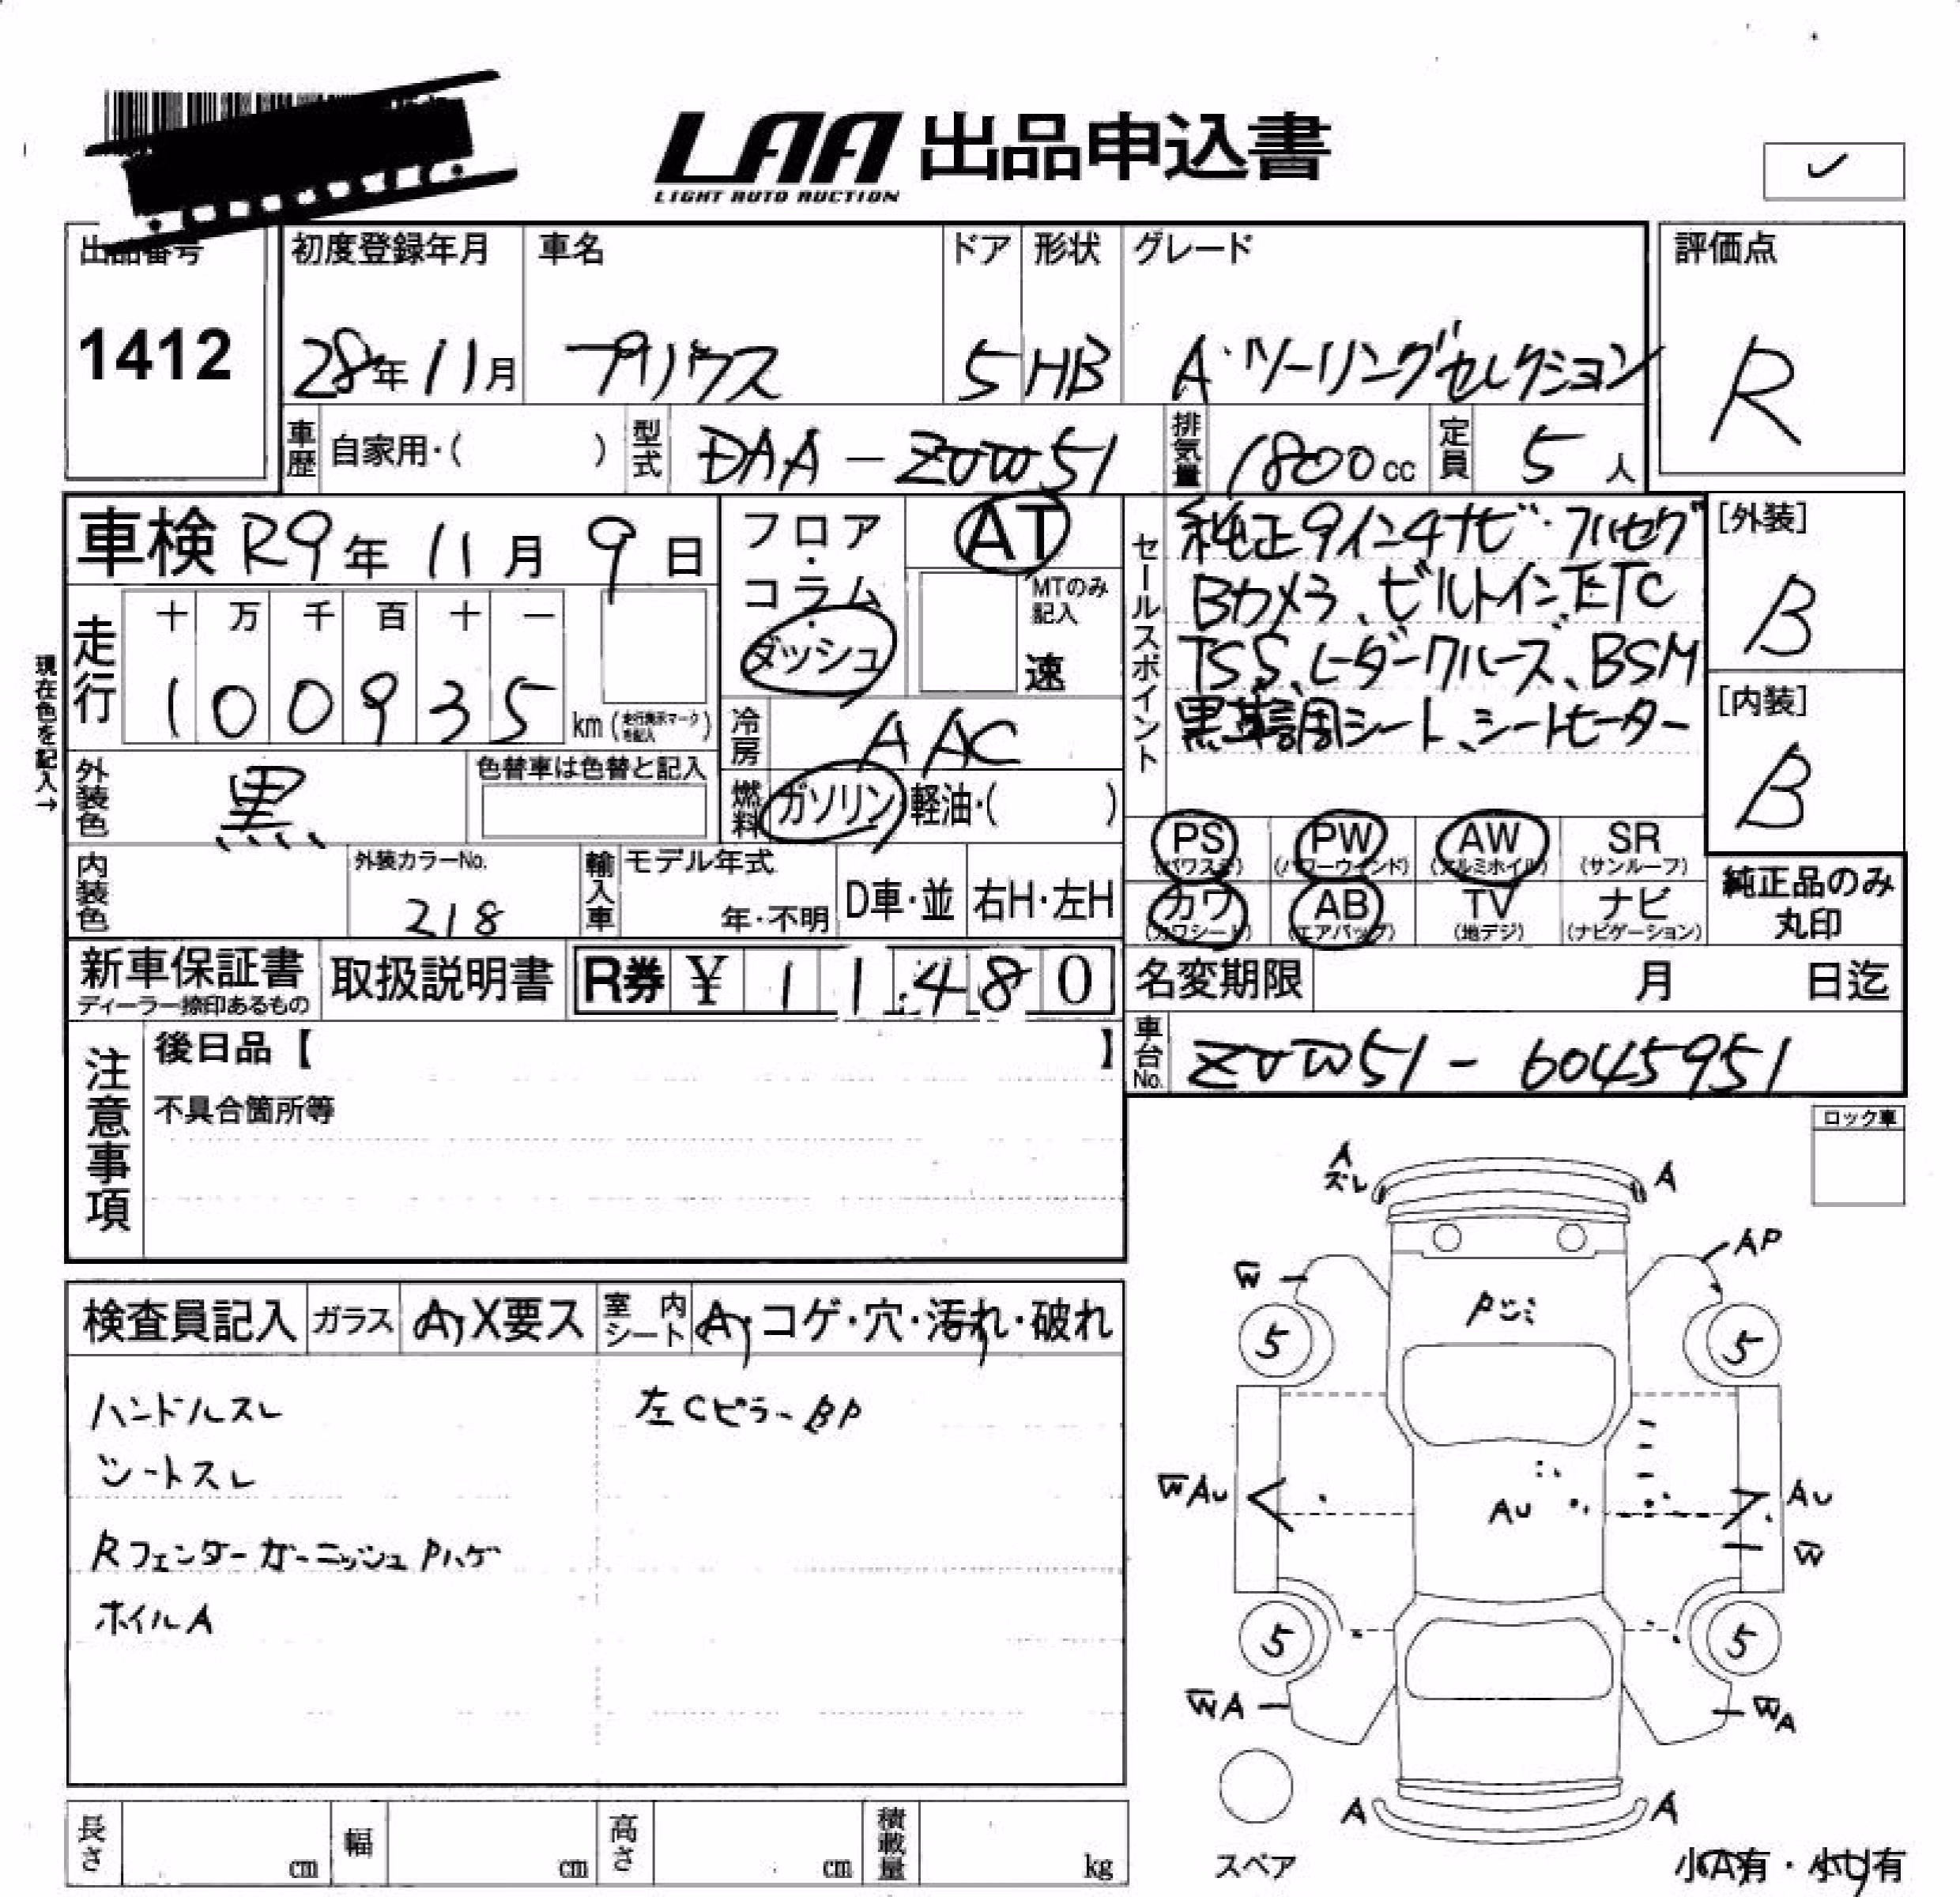 LAA 出品申込書
LIGHT AUTO AUCTION
✓
出品番号
1412
初度登録年月
28年11月
車名
プリウス
ドア
5
形状
HB
グレード
A・ツーリングセレクション
評価点
R
車歴
自家用・( )
型式
DAA-ZVW51
排気量
1800cc
定員
5人
車検 R9年11月9日
フロア・コラム・ダッシュ
AT
MTのみ記入
速
走行
十 万 千 百 十 一
1 0 0 9 3 5
km(走行表示マークを記入)
現在色を記入→
冷房
AAC
外装色
黒
色替車は色替と記入
燃料
ガソリン・軽油・( )
セールスポイント
純正9インチナビ・フルセグ
Bカメラ、ビルトインETC
TSS、レーダークルーズ、BSM
黒革調シート、シートヒーター
[外装]
B
[内装]
B
内装色
外装カラーNo.
218
輸入車
モデル年式
年・不明
D車・並
右H・左H
PS
(パワステ)
PW
(パワーウィンド)
AW
(アルミホイル)
SR
(サンルーフ)
カワ
(カワシート)
AB
(エアバッグ)
TV
(地デジ)
ナビ
(ナビゲーション)
純正品のみ
丸印
新車保証書
ディーラー捺印あるもの
取扱説明書
R券 ¥ 11,480
名変期限 月 日迄
車台No.
ZVW51-6045951
注意事項
後日品【 】
不具合箇所等
ロック車
検査員記入
ガラス
A・X要ス
室内シート
A・コゲ・穴・汚れ・破れ
ハンドルスレ
シートスレ
Rフェンダーガーニッシュ Pハゲ
ホイルA
左Cピラー BP
A
ズレ
A
AP
W
5
5
WAU
AU
AU
W
5
5
WA
WA
A
A
スペア
小A有・小U有
長さ cm
幅 cm
高さ cm
積載量 kg